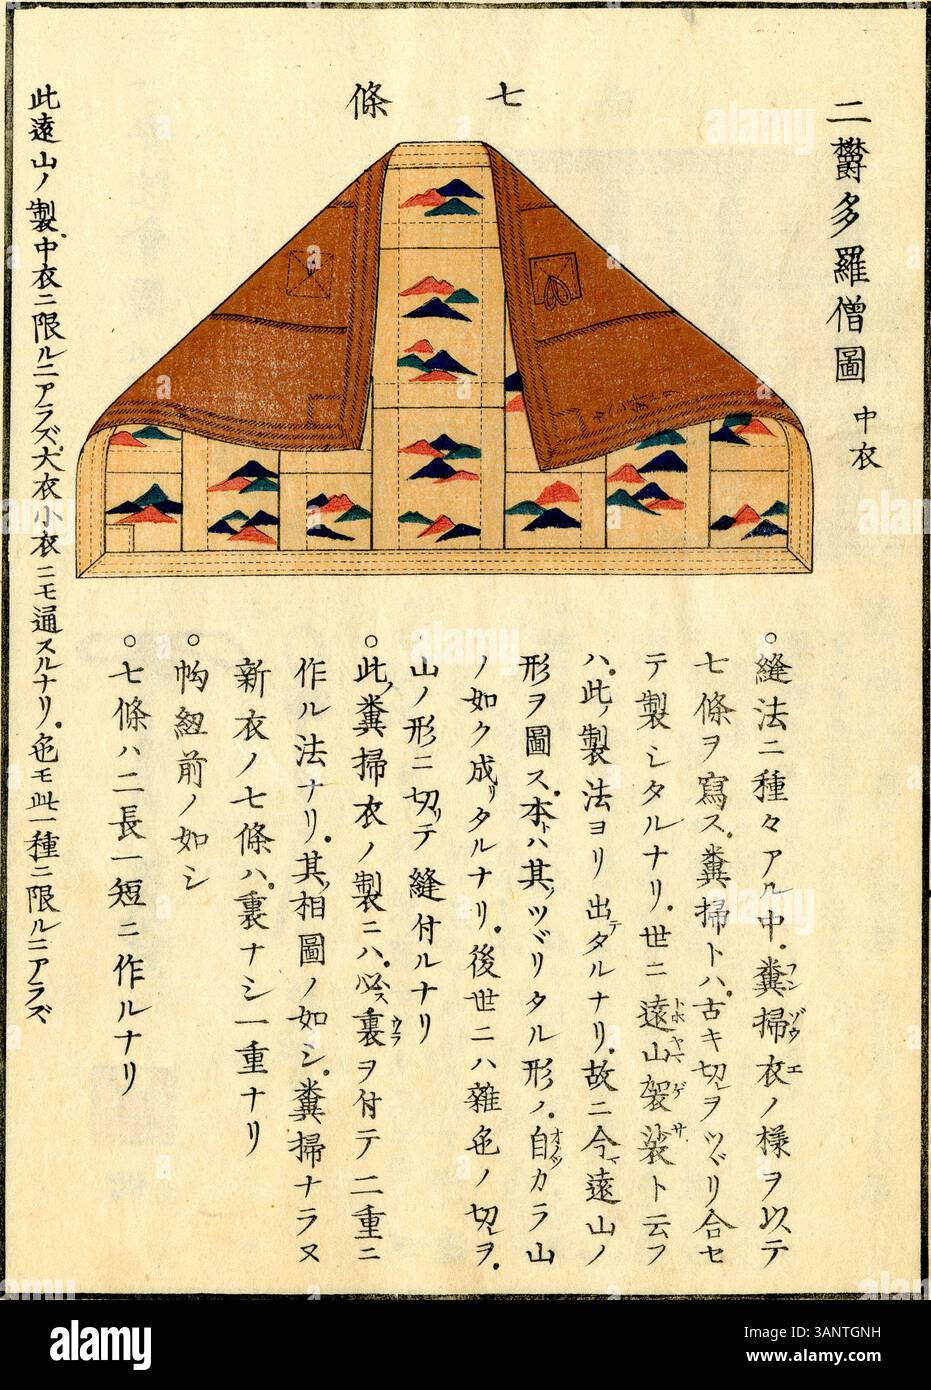 二欝多羅僧圖 中衣
七條
○縫法ニ種々アル中。糞掃衣ノ様ヲ以テ
フンゾウエ
七條ヲ寫ス。糞掃トハ。古キ切ヲツヾリ合セ
テ製シタルナリ。世ニ遠山袈裟ト云フ
トホヤマゲサ
ハ。此ノ製法ヨリ出テタルナリ。故ニ今遠山ノ
形ヲ圖ス。本トハ其ノツヾリタル形ノ。自カラ山
オノヅ
ノ如ク成リタルナリ。後世ニハ雜色ノ切ヲ。
山ノ形ニ切リテ縫付ルナリ
○此ノ糞掃衣ノ製ニハ。必ス裏ヲ付テ二重ニ
ウラ
作ル法ナリ。其ノ相圖ノ如シ。糞掃ナラヌ
新衣ノ七條ハ。裏ナシ一重ナリ
○鉤紐前ノ如シ
○七條ハ二長一短ニ作ルナリ
此遠山ノ製。中衣ニ限ルニアラズ。大衣小衣ニモ通スルナリ。色モ此一種ニ限ルニアラズ
alamy
Image ID: 3ANTGNH
www.alamy.com